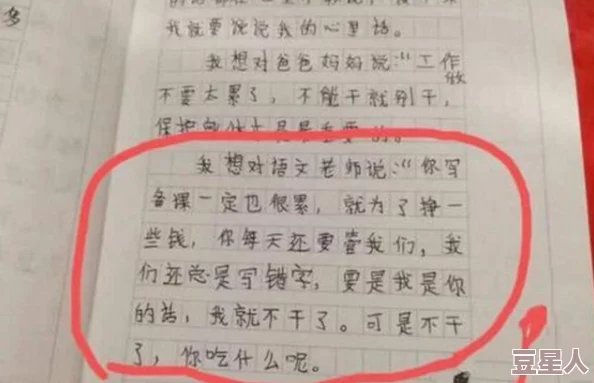 我就要说说我的心里话。
我想对爸爸妈妈说:“工作
不要太累了,不能干就别干,
保护身体才是最重要的。
我想对语文老师说:“你写
备课一定也很累,就为了挣一
些钱,你每天还要管我们,我
们还总是写错字,要是我是你
的话,我就不干了。可是不干
了,你吃什么呢。
豆星人